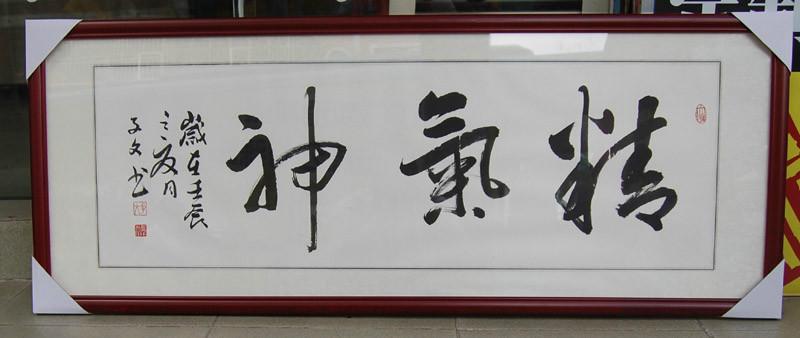 精氣神
歲在壬辰
之夏月
子文书